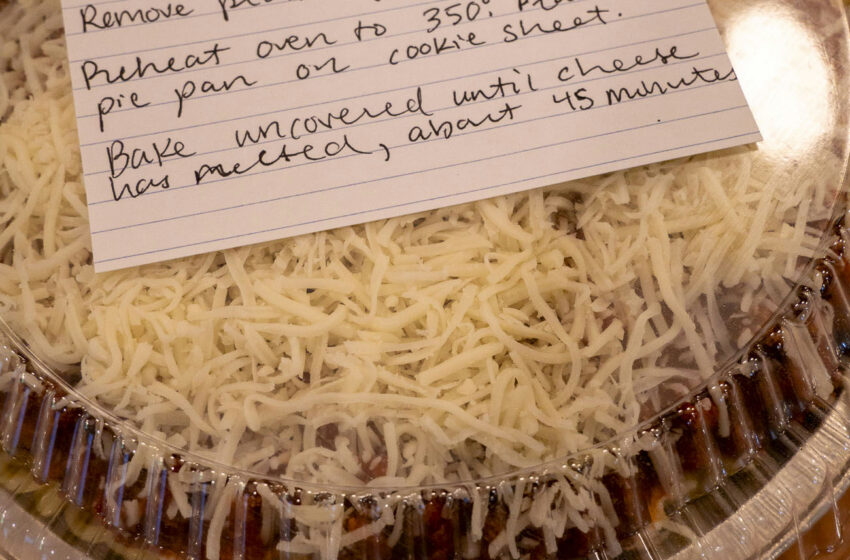 Remove
Preheat oven to 350°.
pie pan on cookie sheet.
Bake uncovered until cheese
has melted, about 45 minutes